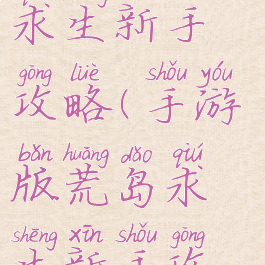 求生新手
gōng lüè shǒu yóu
攻略(手游
bǎn huāng dǎo qiú
版荒岛求
shēng xīn shǒu gōng
生新手攻